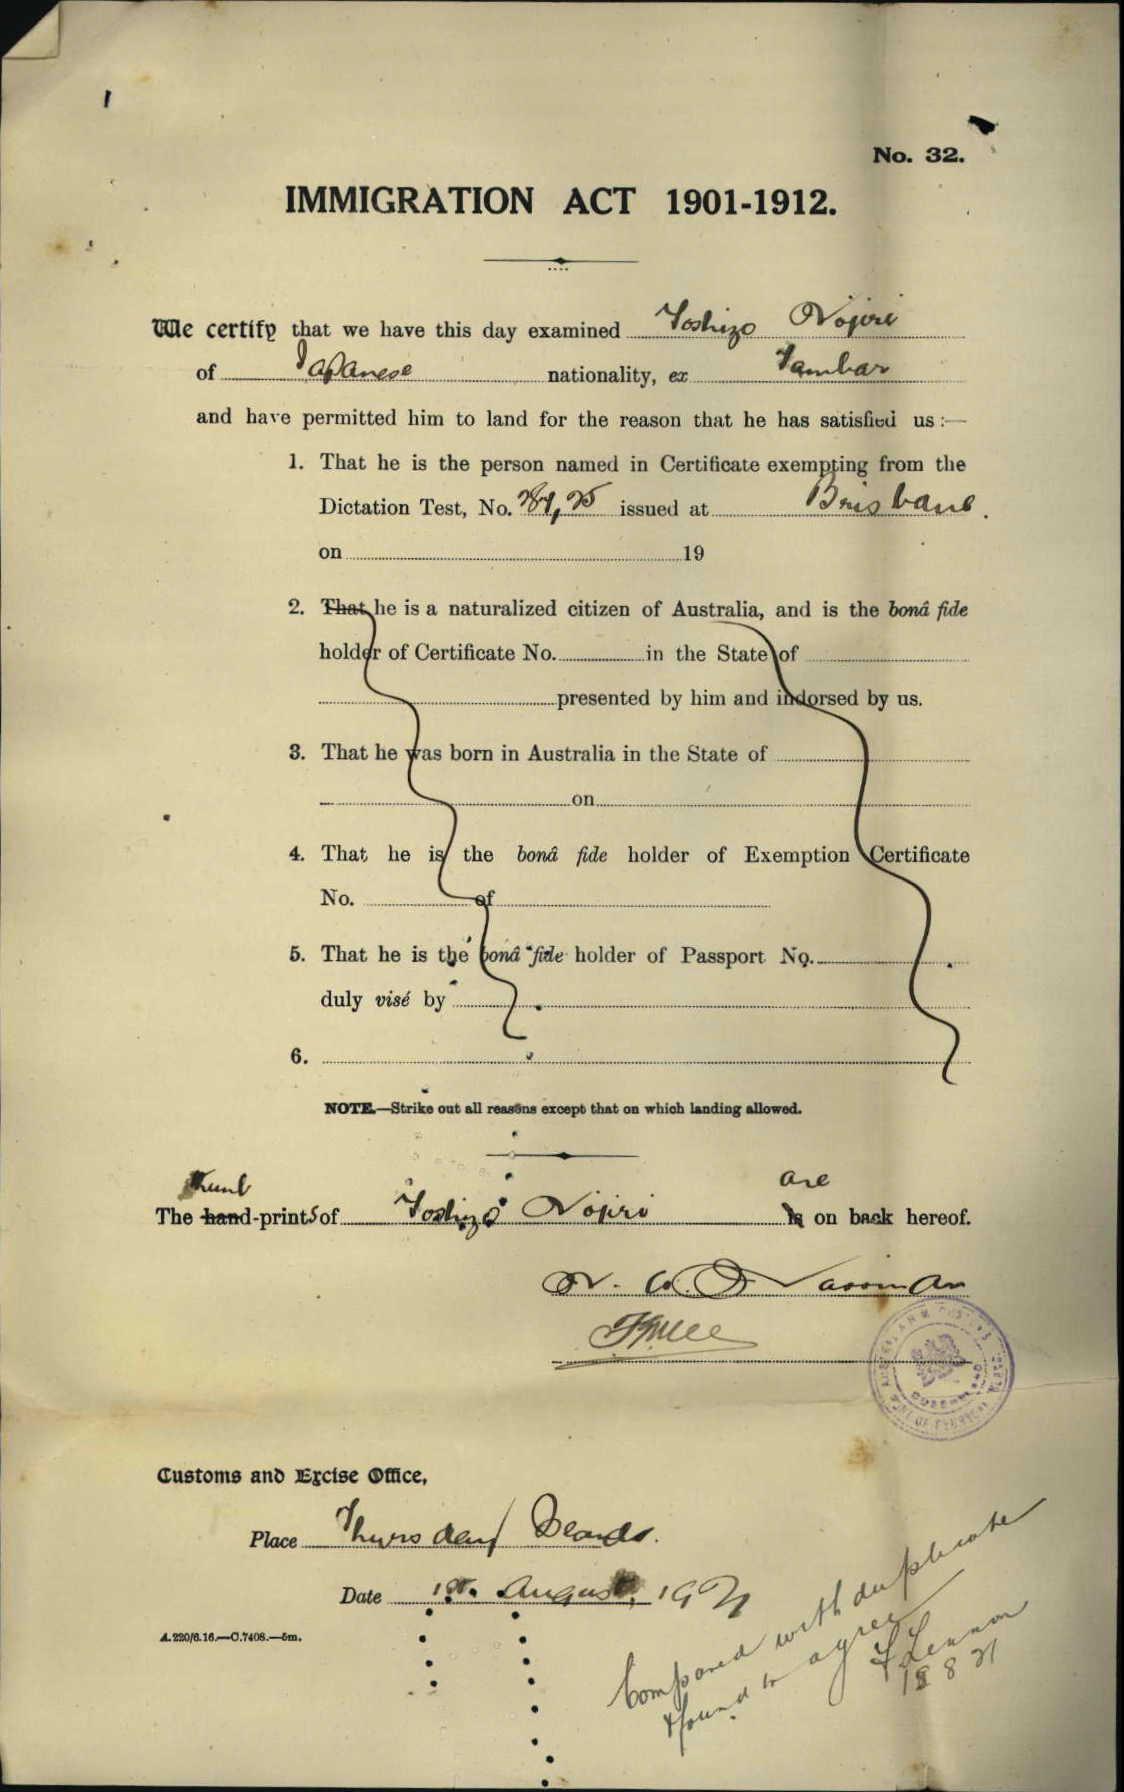 No. 32.
IMMIGRATION ACT 1901-1912.
We certify that we have this day examined Yoshizo Nojiri
of Japanese nationality, ex Tambar
and have permitted him to land for the reason that he has satisfied us :—
1. That he is the person named in Certificate exempting from the
Dictation Test, No. issued at Brisbane.
on 19
2. That he is a naturalized citizen of Australia, and is the bonâ fide
holder of Certificate No. in the State of
presented by him and indorsed by us.
3. That he was born in Australia in the State of
on
4. That he is the bonâ fide holder of Exemption Certificate
No. of
5. That he is the bonâ fide holder of Passport No.
duly visé by
6.
NOTE.—Strike out all reasons except that on which landing allowed.
Thumb are
The hand-prints of Yoshizo Nojiri is on back hereof.
QUEENSLAND
Customs and Excise Office,
Place Thursday Island.
Date 1st. August, 1921
A.220/6.16.—C.7408.—5m.
Compared with duplicate
& found to agree
Lennon
18 8 21